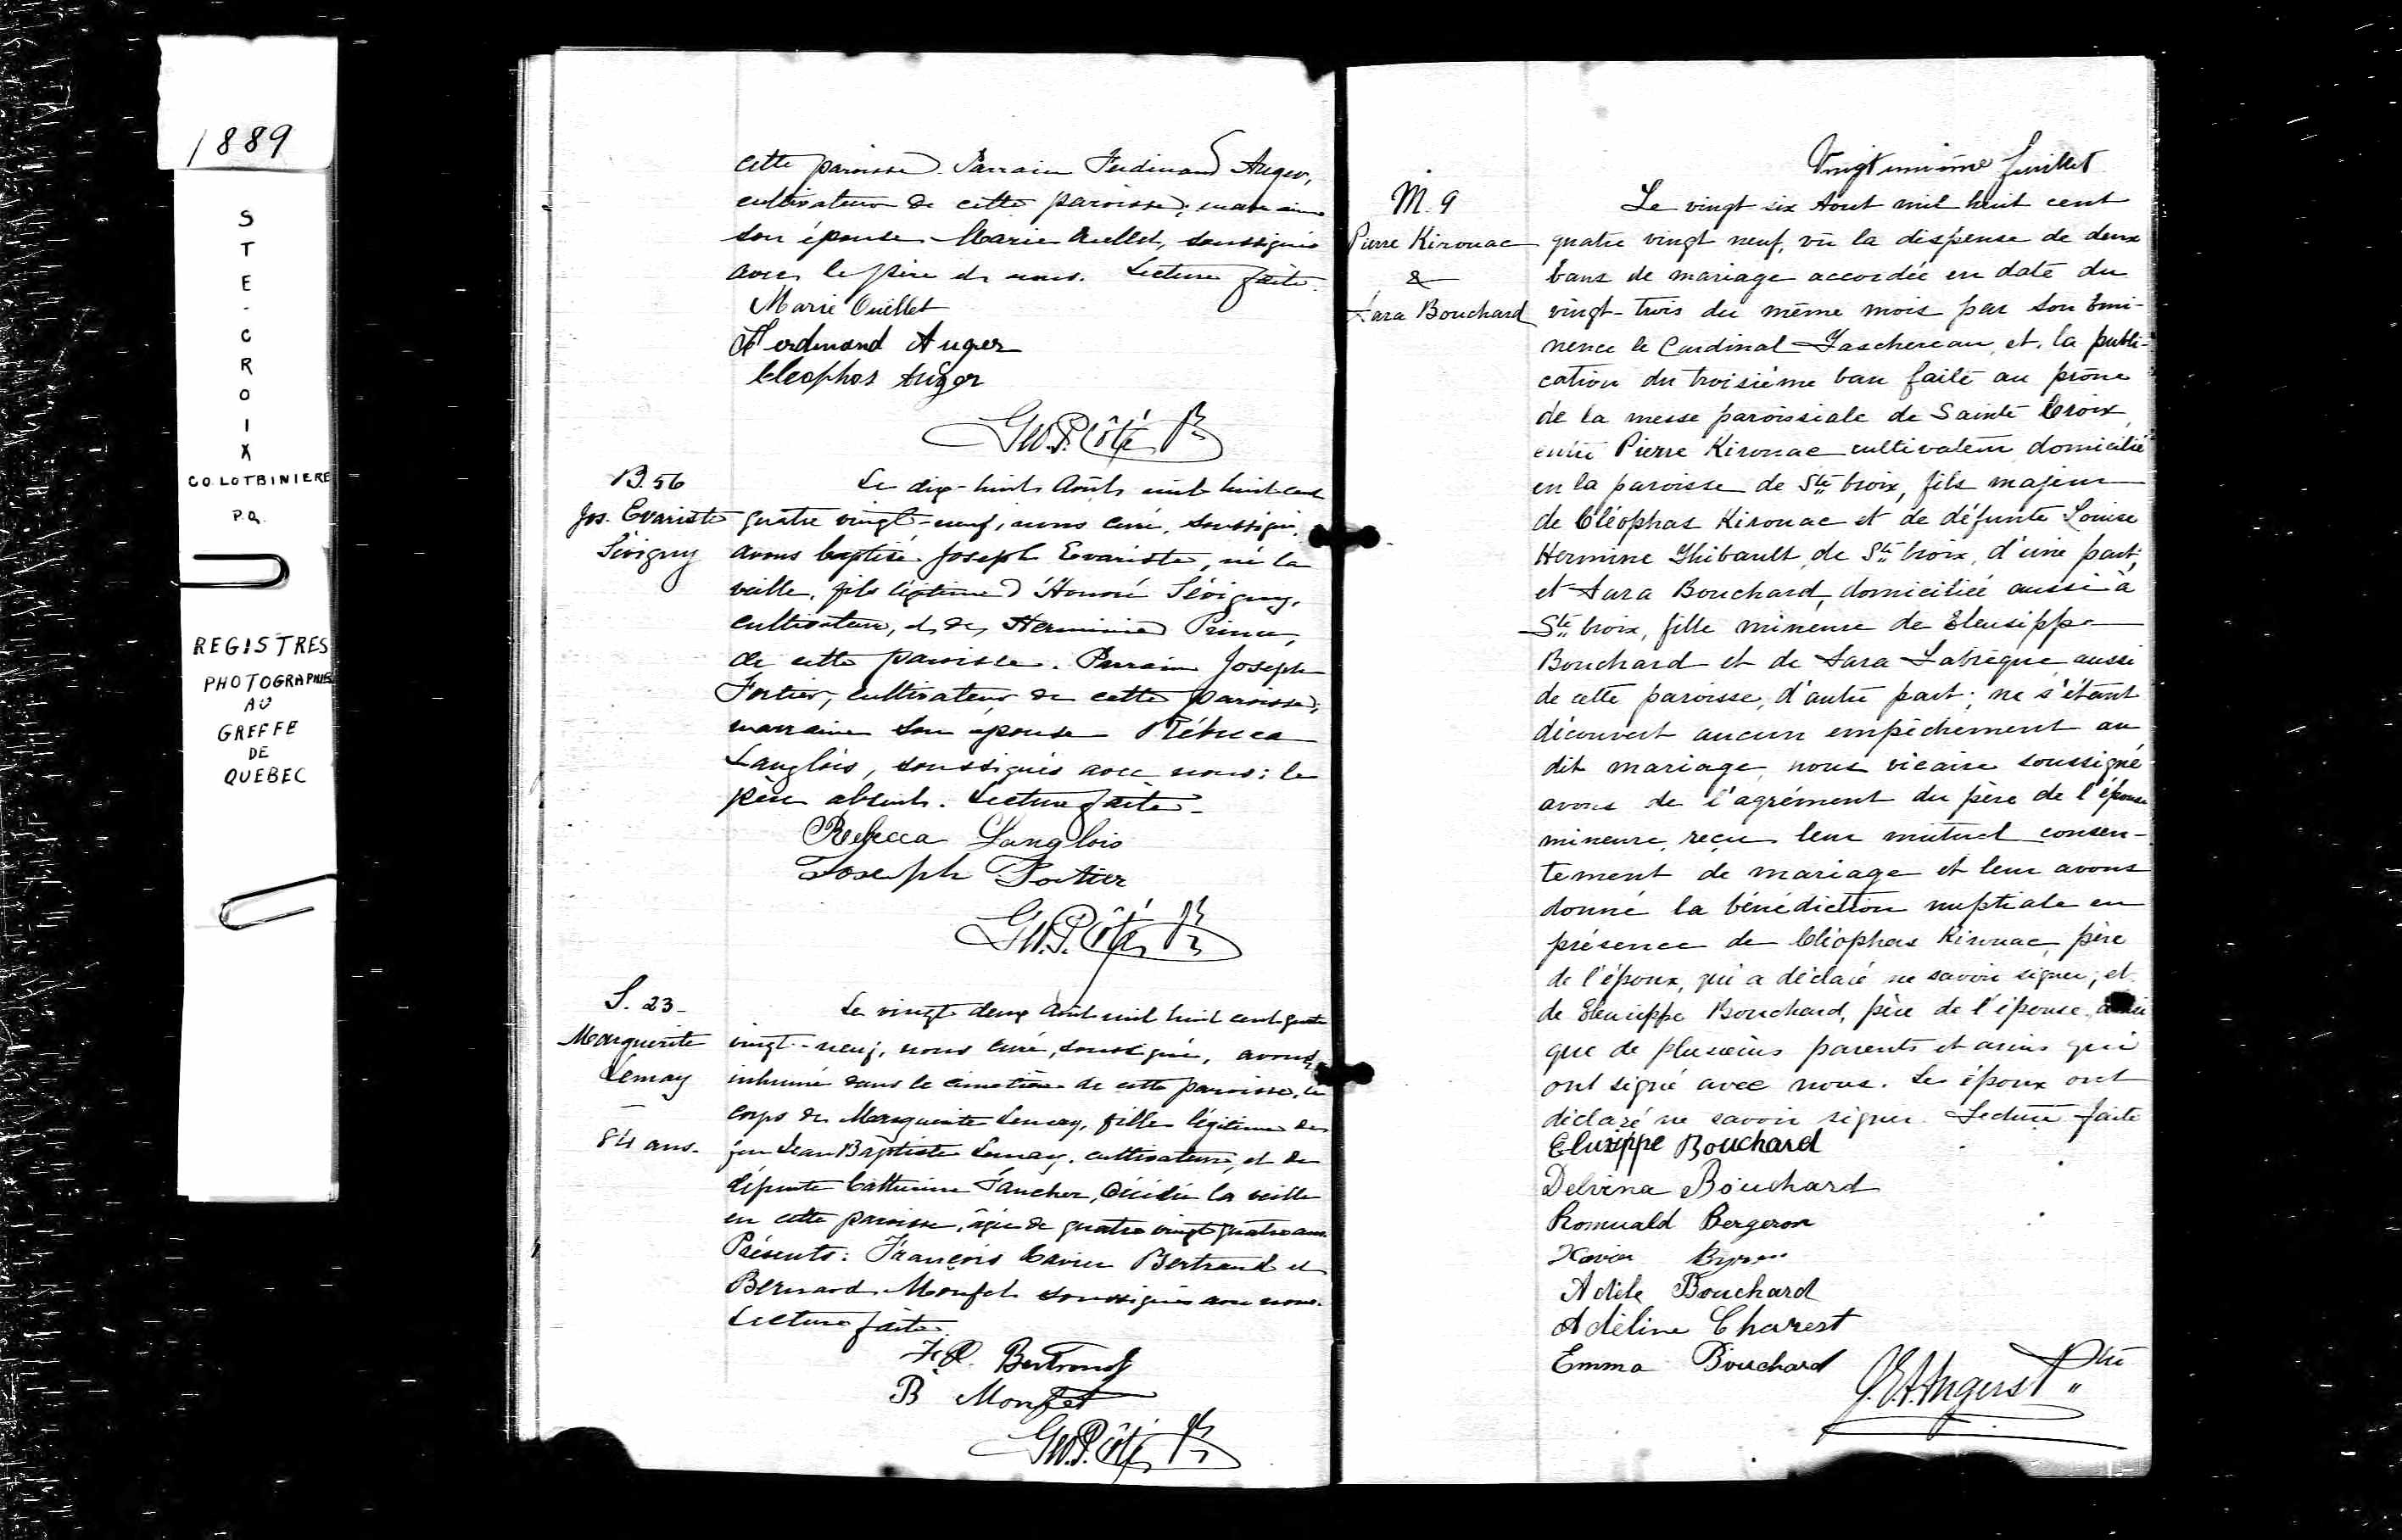 1889
STE-CROIX
CO. LOTBINIERE
P.Q.
REGISTRES
PHOTOGRAPHIÉS
AU
GREFFE
DE
QUEBEC
cette paroisse. Parrain Ferdinand Auger,
cultivateur de cette paroisse; marraine
son épouse Marie Ouellet, soussignés
avec le père et nous. Lecture faite.
Marie Ouellet
Ferdinand Auger
Cleophas Auger
Geo. P. Côté Ptre
B. 56
Jos. Evariste
Sévigny
Le dix-huit Août mil huit cent
quatre vingt-neuf, nous curé, soussigné,
avons baptisé Joseph Evariste, né la
veille, fils légitime d'Honoré Sévigny,
cultivateur, et de Herminie Prince,
de cette paroisse. Parrain Joseph
Fortier, cultivateur de cette paroisse;
marraine son épouse Rébecca
Langlois, soussignés avec nous; le
père absent. Lecture faite.
Rebecca Langlois
Joseph Fortier
Geo. P. Côté Ptre
S. 23
Marguerite
Lemay
84 ans.
Le vingt deux Août mil huit cent quatre
vingt-neuf, nous curé, soussigné, avons
inhumé dans le cimetière de cette paroisse, le
corps de Marguerite Lemay, fille légitime de
feu Jean Baptiste Lemay, cultivateur, et de
défunte Catherine Faucher, décédée la veille
en cette paroisse, âgée de quatre vingt quatre ans.
Présents: François Xavier Bertrand et
Bernard Monfet soussignés avec nous.
Lecture faite.
F. X. Bertrand
B Monfet
Geo. P. Côté Ptre
Vingt unième feuillet
M. 9
Pierre Kirouac
&
Sara Bouchard
Le vingt six Aout mil huit cent
quatre vingt neuf, vu la dispense de deux
bans de mariage accordée en date du
vingt-trois du même mois par son Emi-
nence le Cardinal Taschereau, et la publi-
cation du troisième ban faite au prône
de la messe paroissiale de Sainte Croix,
entre Pierre Kirouac cultivateur domicilié
en la paroisse de Ste Croix, fils majeur
de Cléophas Kirouac et de défunte Louise
Hermine Thibault, de Ste Croix, d'une part;
et Sara Bouchard, domiciliée aussi à
Ste Croix, fille mineure de Eleusippe
Bouchard et de Sara Labrèque aussi
de cette paroisse, d'autre part; ne s'étant
découvert aucun empêchement au
dit mariage, nous vicaire soussigné
avons de l'agrément du père de l'épouse
mineure, reçu leur mutuel consen-
tement de mariage et leur avons
donné la bénédiction nuptiale en
présence de Cléophas Kirouac, père
de l'époux, qui a déclaré ne savoir signer, et
de Eleusippe Bouchard, père de l'épouse, ainsi
que de plusieurs parents et amis qui
ont signé avec nous. Les époux ont
déclaré ne savoir signer. Lecture faite
Elusippe Bouchard
Delvina Bouchard
Romuald Bergeron
Xavier
Adèle Bouchard
Adéline Charest
Emma Bouchard
Ptre